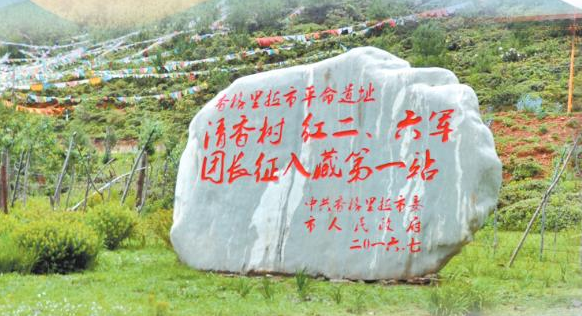 香格里拉市革命遗址
清香树 红二、六军
团长征入藏第一站
中共香格里拉市委
市人民政府
二〇一六.七